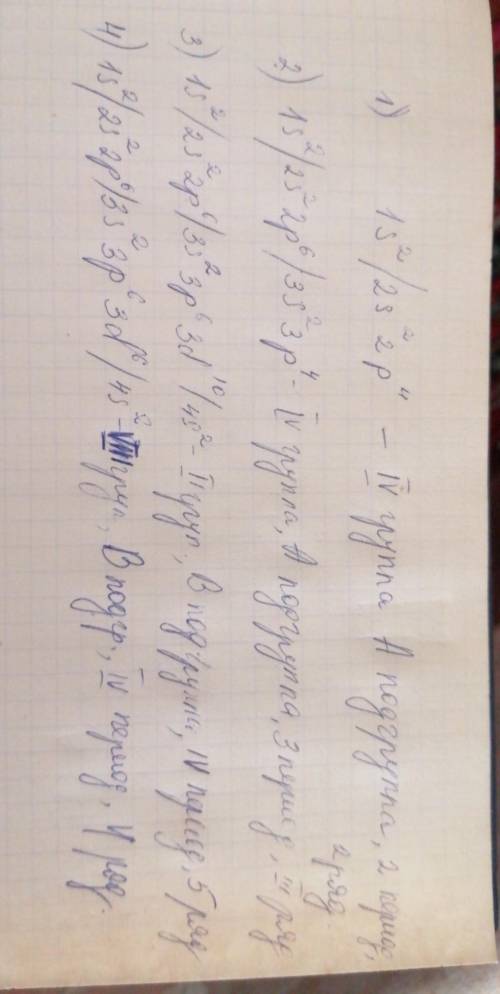 1) 1s²/2s²2p⁴ – IV группа А подгруппа, 2 период,
2 ряд.
2) 1s²/2s²2p⁶/3s²3p⁴ – IV группа, А подгруппа, 3 период, III ряд
3) 1s²/2s²2p⁶/3s²3p⁶3d¹⁰/4s² – II груп, В подгруппа, IV период, 5 ряд
4) 1s²/2s²2p⁶/3s²3p⁶3d⁶/4s² – VIII груп, В подгр, IV период, 4 ряд.